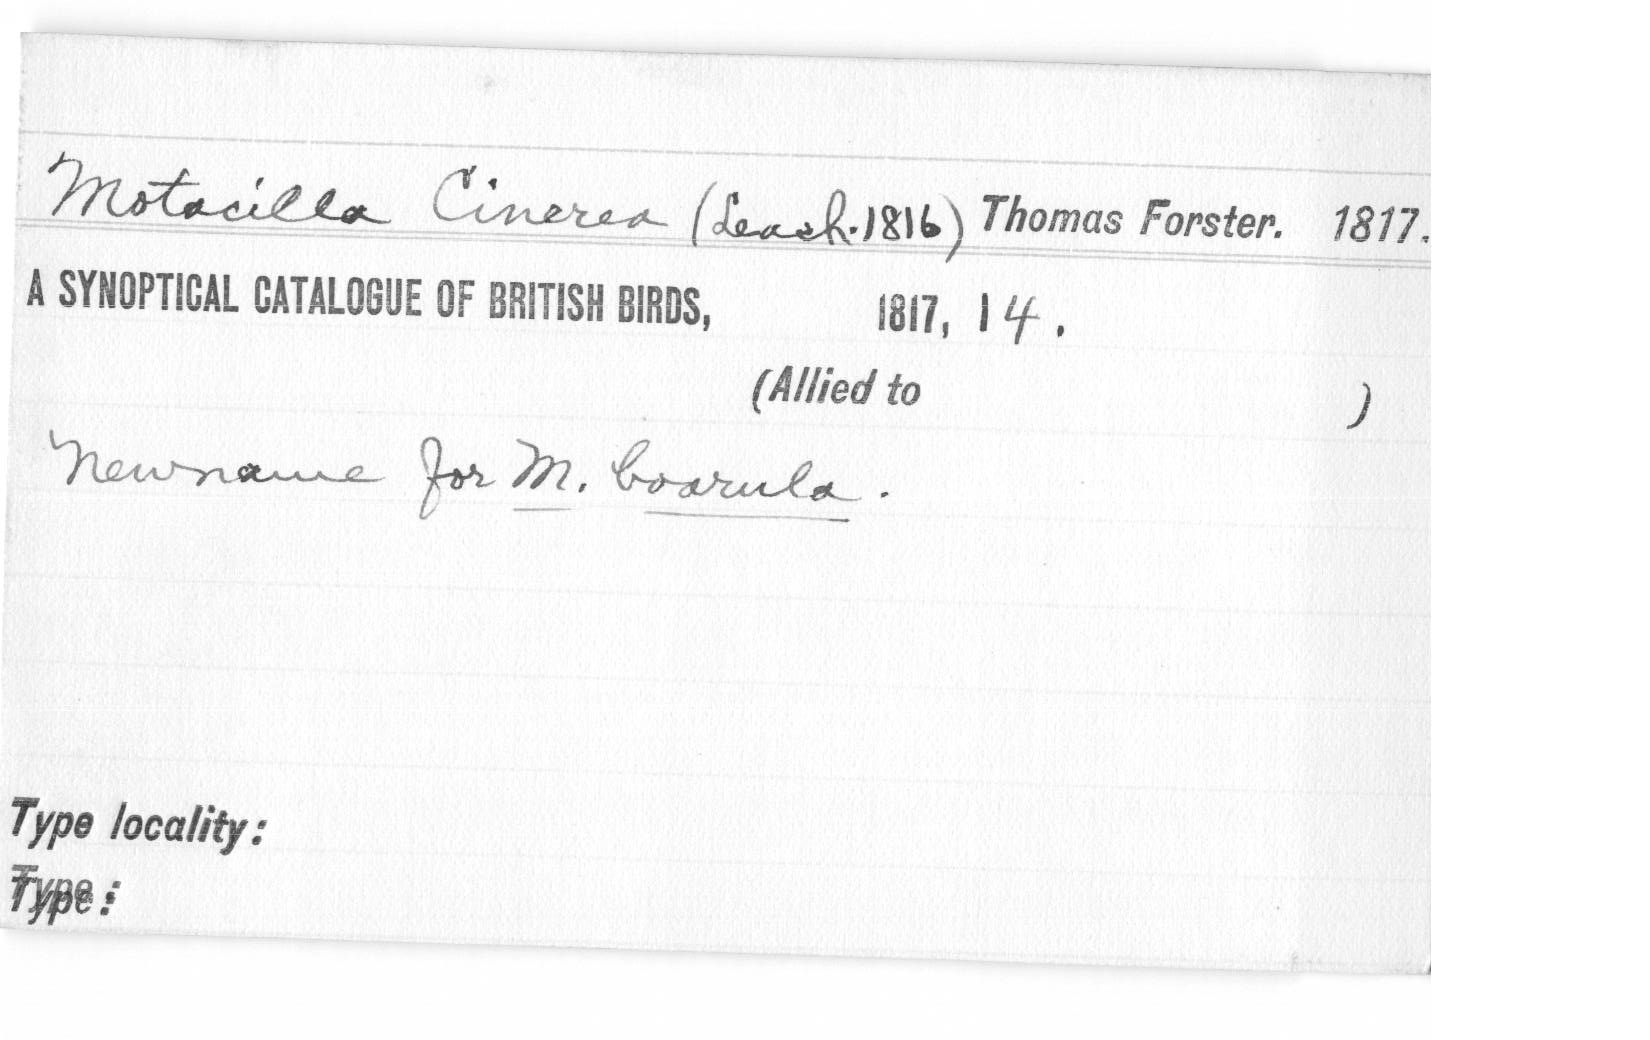 Motacilla Cinerea (Leach. 1816) Thomas Forster. 1817.
A SYNOPTICAL CATALOGUE OF BRITISH BIRDS, 1817, 14.
(Allied to )
New name for M. boarula.
Type locality:
Type: